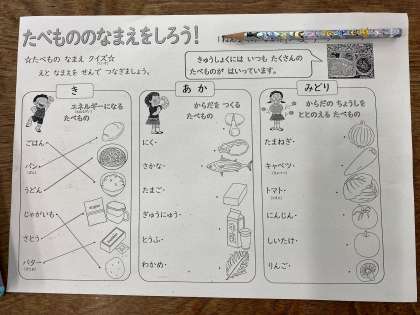 たべもののなまえをしろう!
☆たべもの なまえ クイズ☆
えと なまえを せんで つなぎましょう。
きゅうしょくには いつも たくさんの
たべものが はいっています。
き
エネルギーになる
たべもの
ごはん
パン
うどん
じゃがいも
さとう
バター
あか
からだを つくる
たべもの
にく
さかな
たまご
ぎゅうにゅう
とうふ
わかめ
みどり
からだの ちょうしを
ととのえる たべもの
たまねぎ
キャベツ
トマト
にんじん
しいたけ
りんご